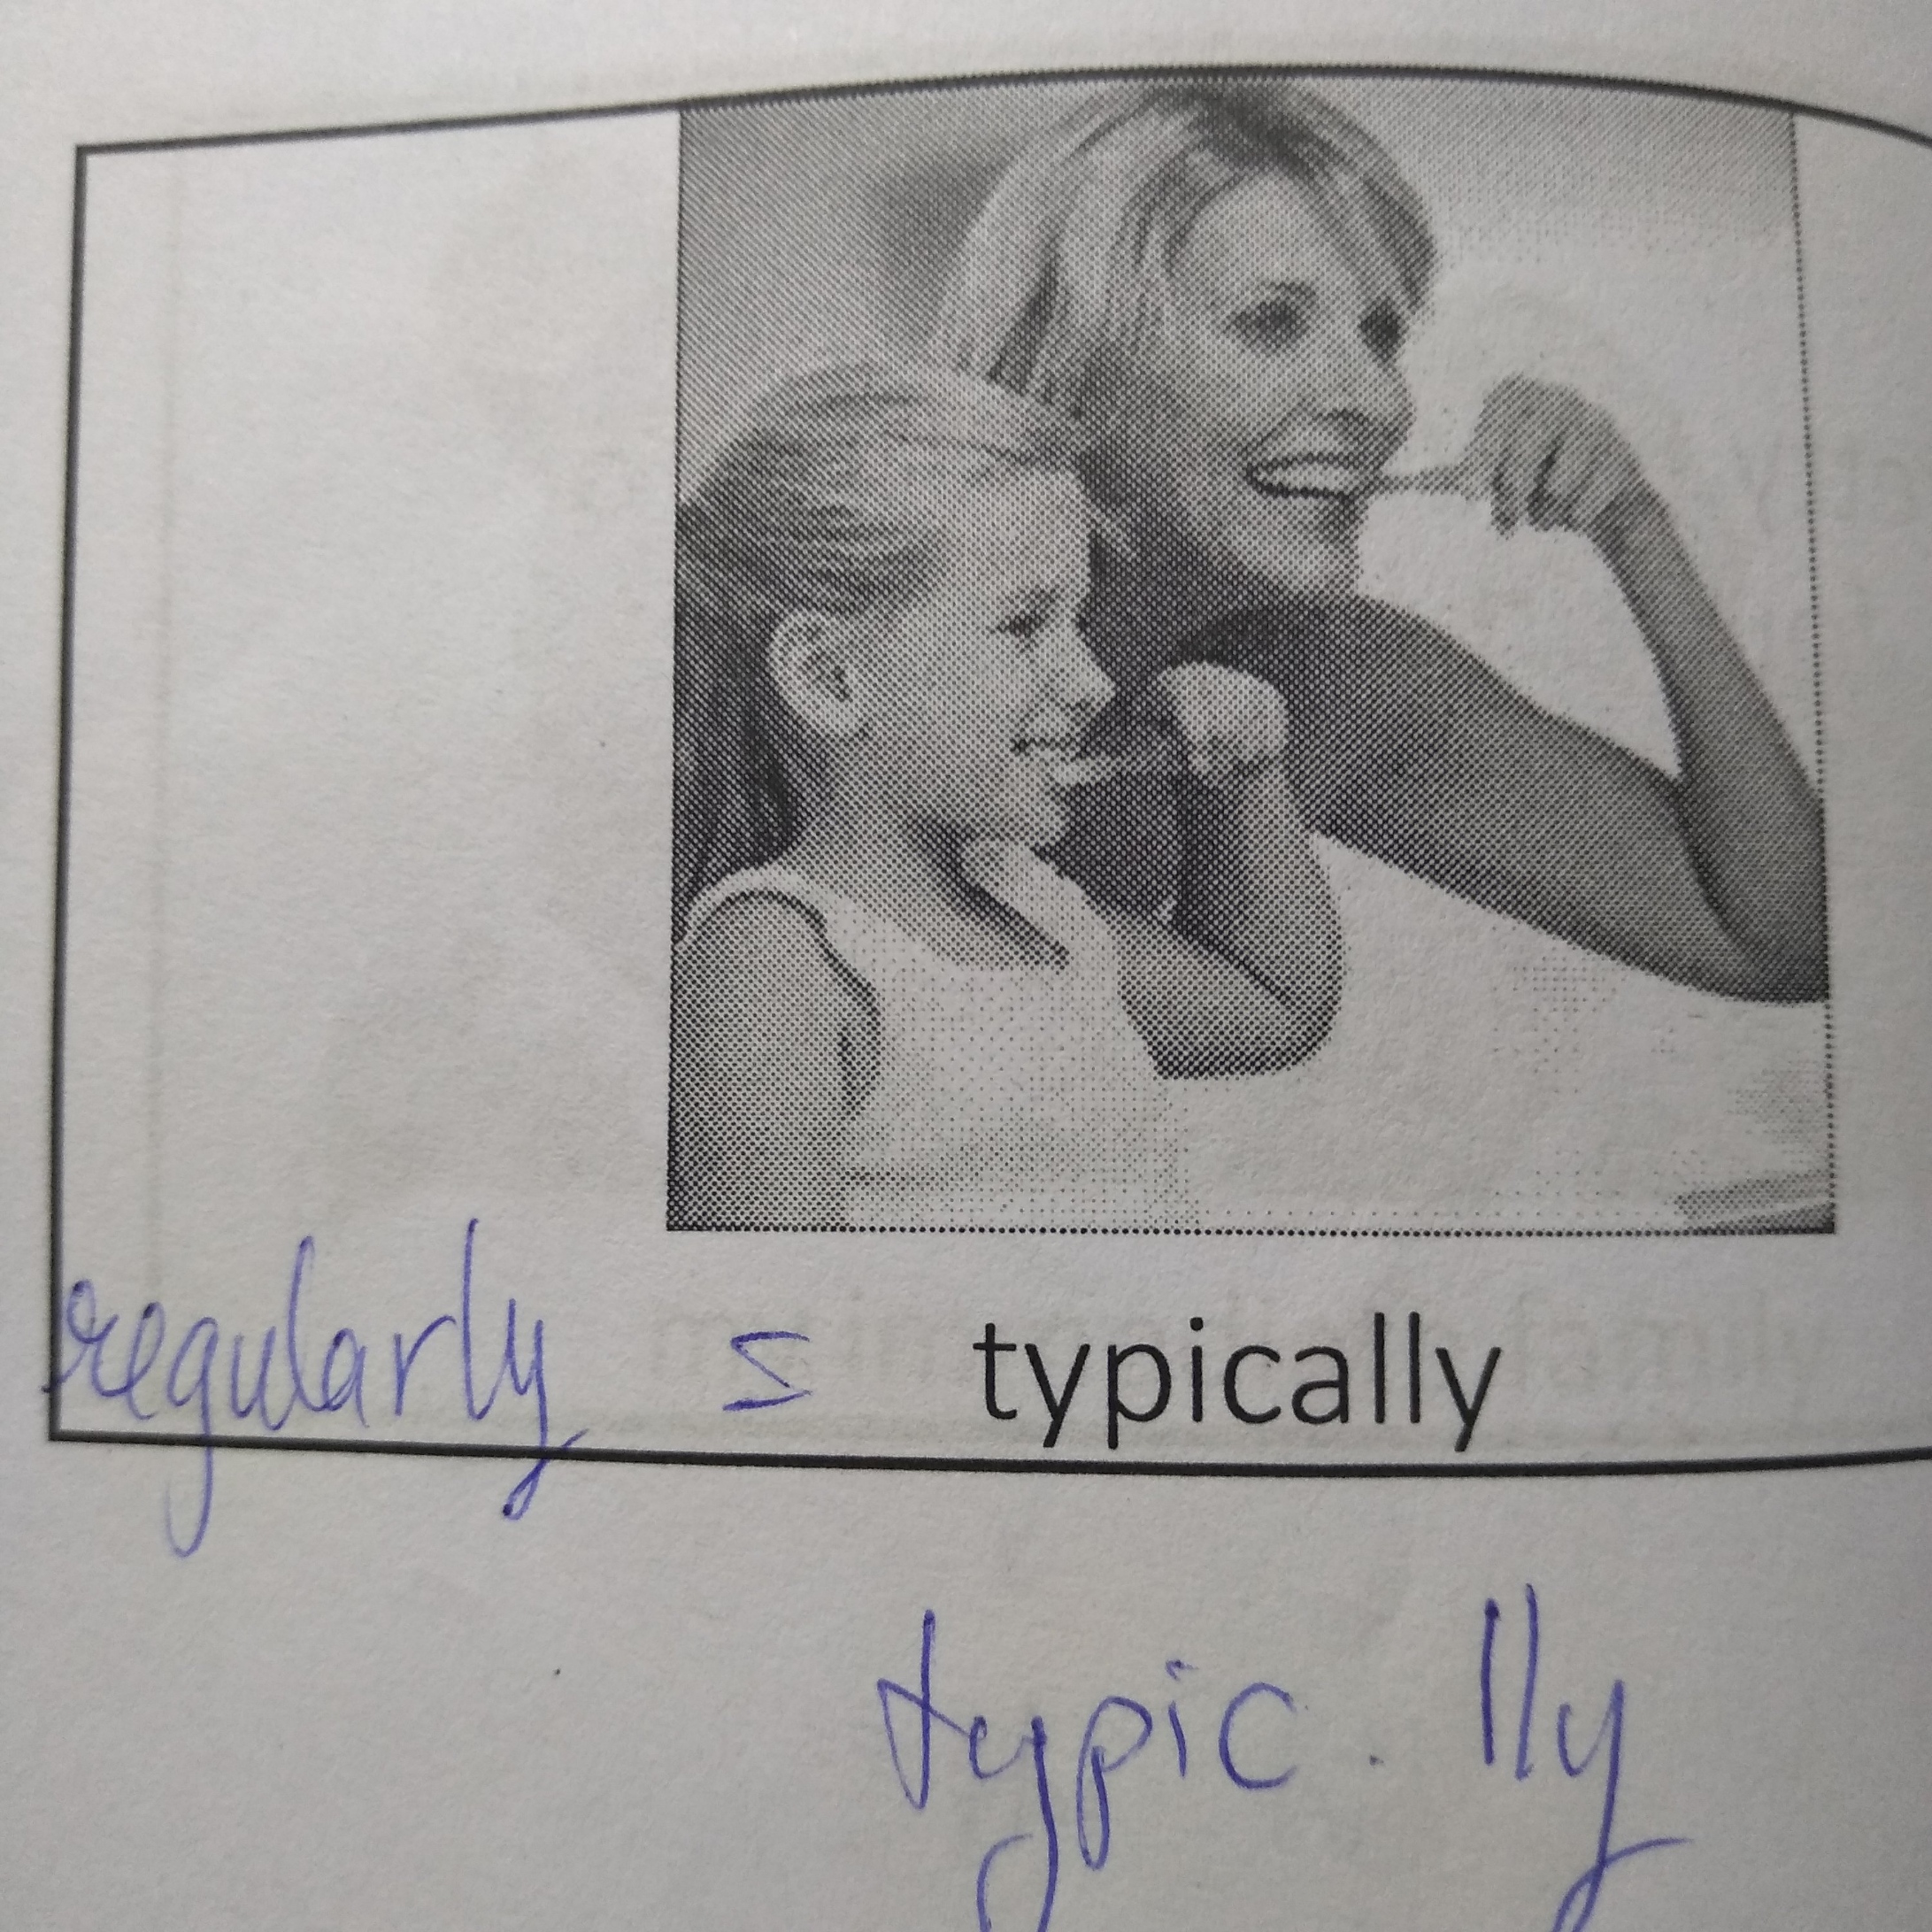 regularly = typically
typic. lly